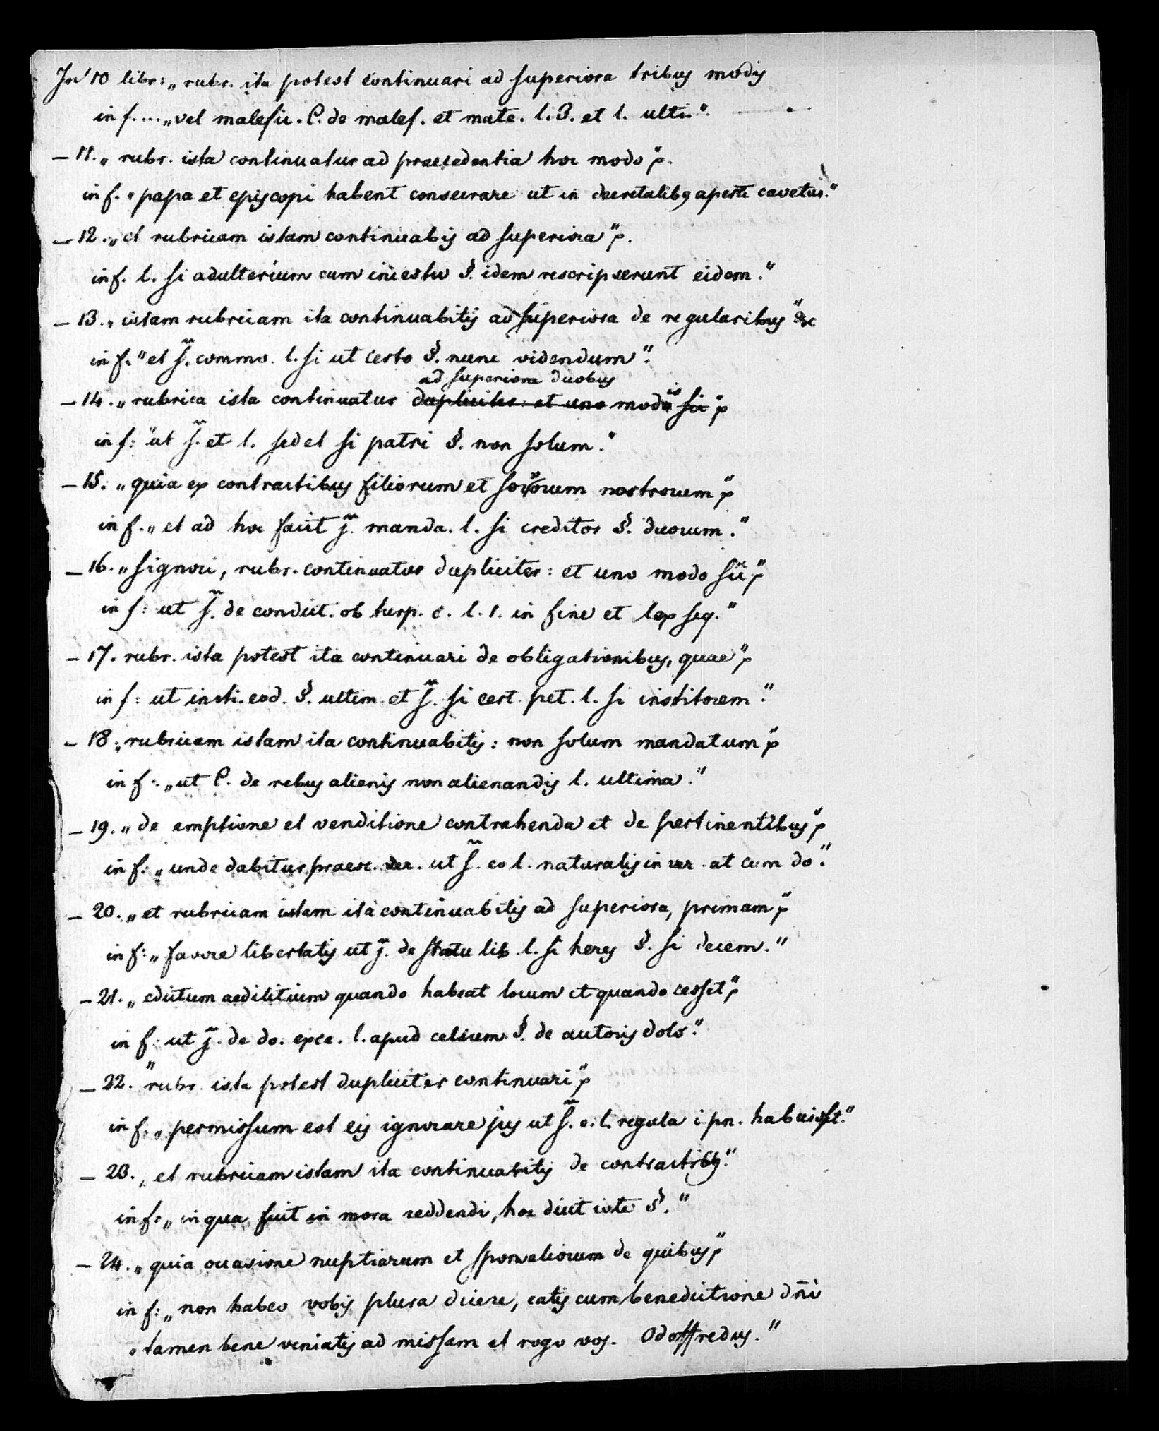 In 10 libr: „ rubr. ita potest continuari ad superiora tribus modis
in f.... „vel malefic. C. de malef. et mate. l. 3. et l. ulti".
— 11. „ rubr. ista continuatur ad praecedentia hoc modo"p.
in f. „ papa et episcopi habent consecrare ut in decretalibq aperte cavetur."
— 12. „et rubricam istam continuabis ad superiora"p.
in f. l. si adulterium cum incestu §. idem rescripserunt eidem."
— 13. „ istam rubricam ita continuabitis ad superiora de regularibus" &c
in f. "et s. commo. l. si ut certo §. nunc videndum".
ad superiora duobus
— 14. „ rubrica ista continuatur dupliciter: et uno modis sic"p
in f: "ut s. et l. sed et si patri §. non solum."
— 15. „ quia ex contractibus filiorum et servorum nostrorum"p
in f. „ et ad hoc facit j. manda. l. si creditor §. duorum."
— 16. „ signori, rubr. continuatur dupliciter: et uno modo sic"p
in f: ut s. de condict. ob turp. c. l. 1. in fine et lex seq."
— 17. rubr. ista potest ita continuari de obligationibus, quae"p
in f: ut insti. eod. §. ultim. et s. si cert. pet. l. si institorem".
— 18. „rubricam istam ita continuabitis: non solum mandatum"p
in f: „ut C. de rebus alienis non alienandis l. ultima."
— 19. „ de emptione et venditione contrahenda et de pertinentibus"p
in f: „ unde dabitur praesc. ver. ut s. eo l. naturalis in ver. at cum do".
— 20. „ et rubricam istam ita continuabitis ad superiora, primam"p
in f: „ favore libertatis ut j. de statu lib. l. si heres §. si decem."
— 21. „ edictum aedilitium quando habeat locum et quando cesset"p
in f: ut j. de do. exce. l. apud celsum §. de autoris dolo".
— 22. "rubr. ista potest dupliciter continuari"p
in f. „ permissum est eis ignorare jus ut s. e. l. regula i. pn. habuisset."
— 23. „ et rubricam istam ita continuabitis de contractibq."
in f: „ in qua fuit in mora reddendi, hoc dicit iste §."
— 24. „ quia occasione nuptiarum et sponsaliorum de quibus"p
in f: „ non habeo vobis plura dicere, eatis cum benedictione dñi
„ tamen bene veniatis ad missam et rogo vos. Odoffredus."